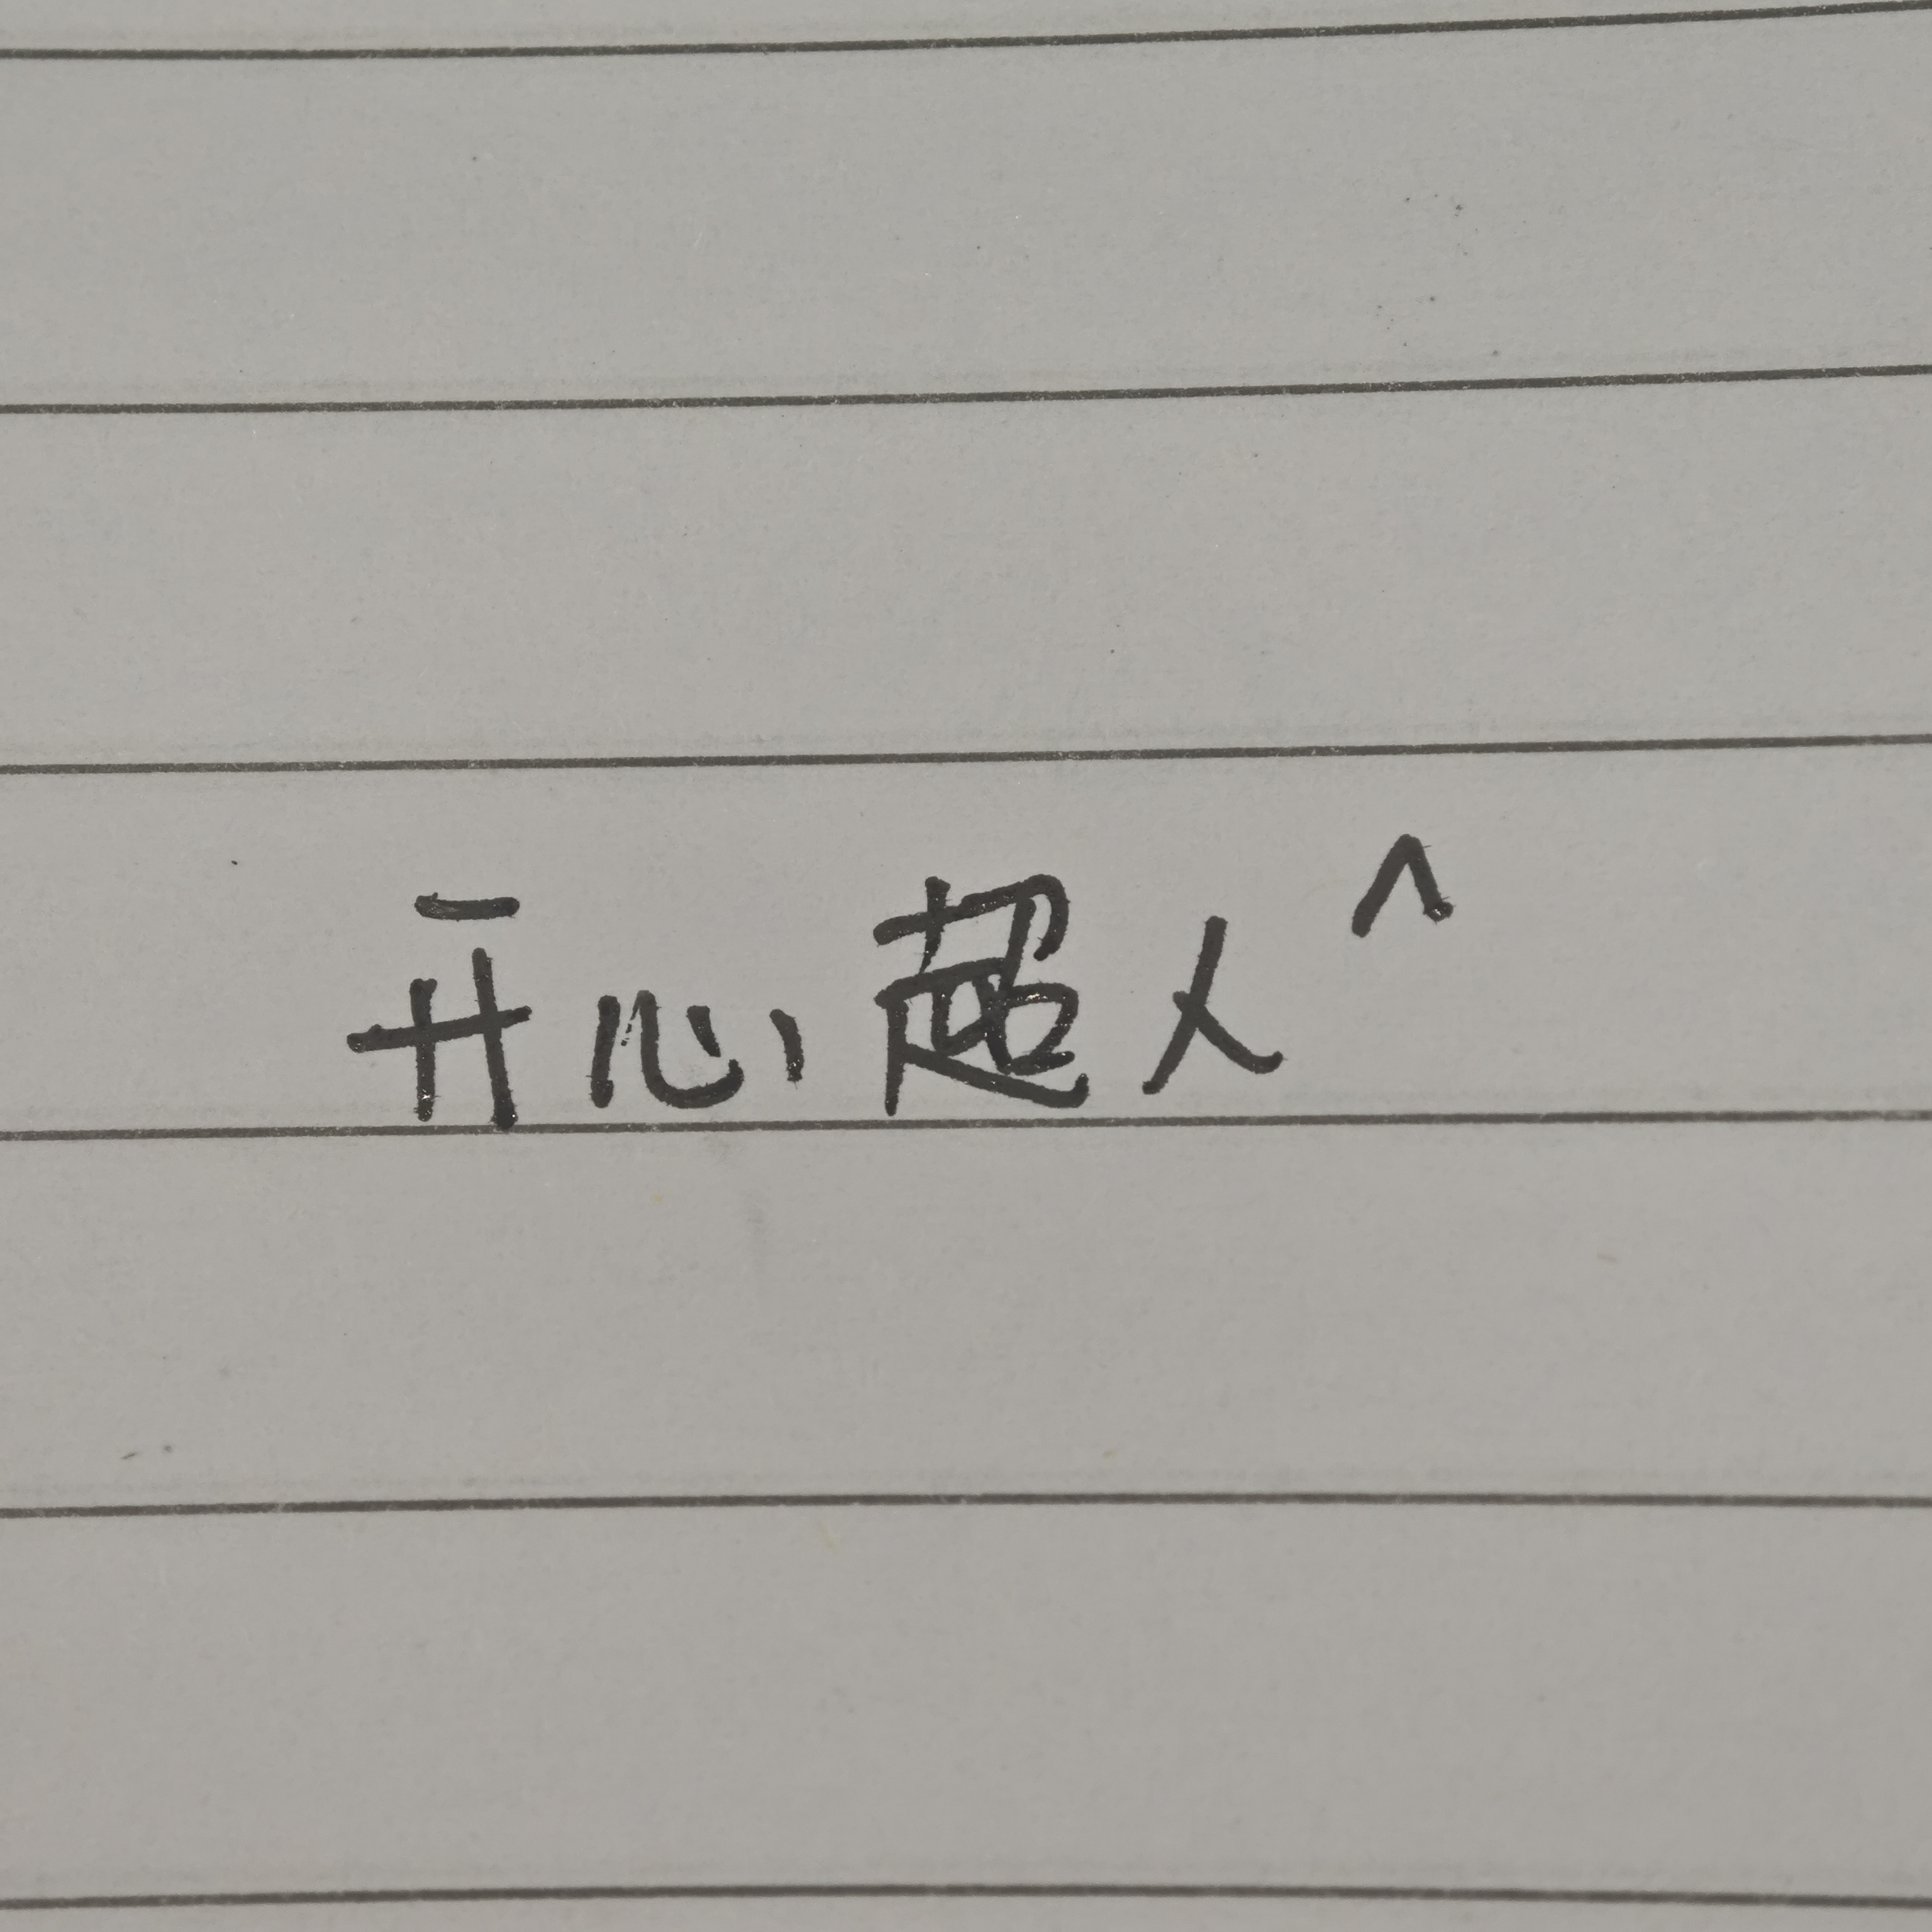 开心超人^